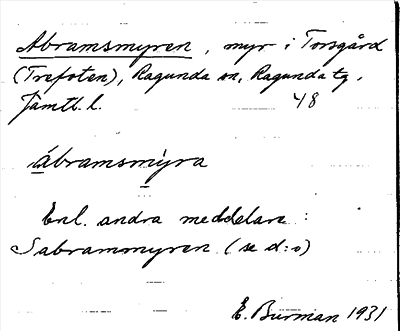 Abramsmyren, myr i Torsgård
(Trefoten), Ragunda sn, Ragunda tg,
Jämtl. l. 48
ábramsmỳra
Enl. andra meddelare:
Sabrammyren (se d:o)
E. Burman 1931